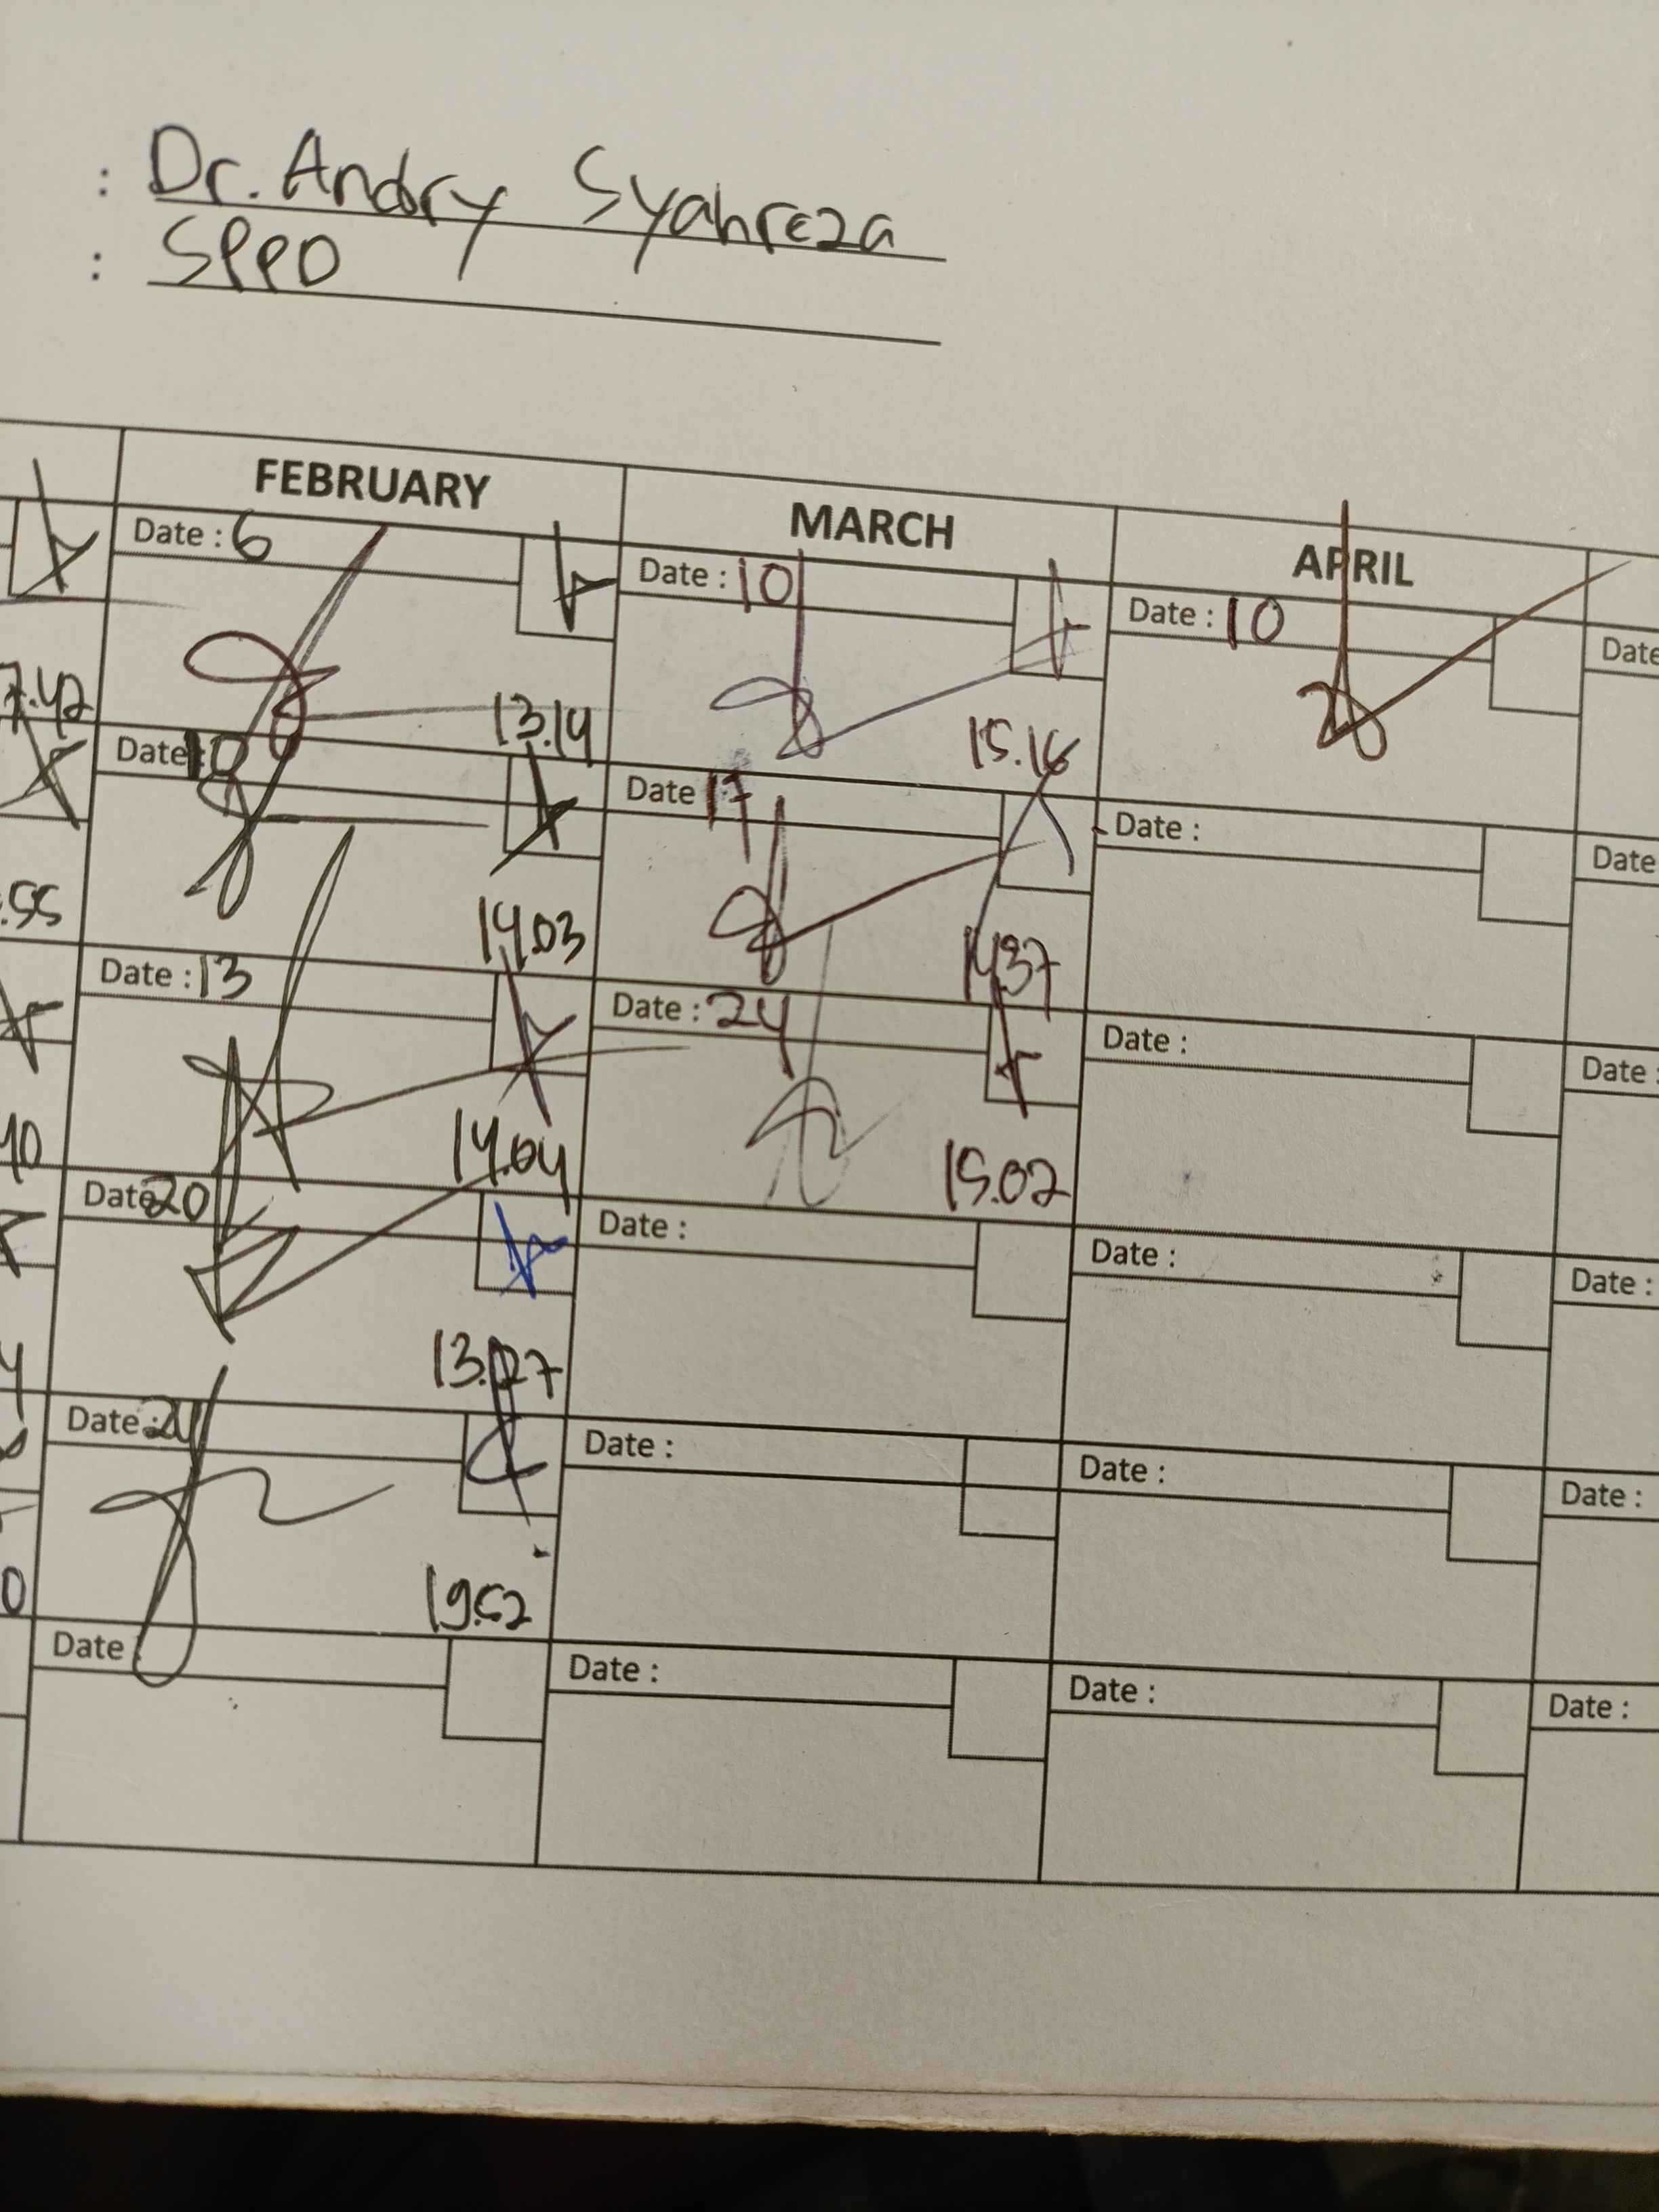 : Dr. Andry Syahreza
: SPPD
FEBRUARY MARCH APRIL
Date : 6
Date : 10
Date : 10
Date
7.42
13.14
15.16
Date : 10
Date 17
Date :
Date
.55
14.03
14.37
Date : 13
Date : 24
Date :
Date :
40
14.04
15.02
Date 20
Date :
Date :
Date :
13.27
Date : 24
Date :
Date :
Date :
0
19.52
Date :
Date :
Date :
Date :